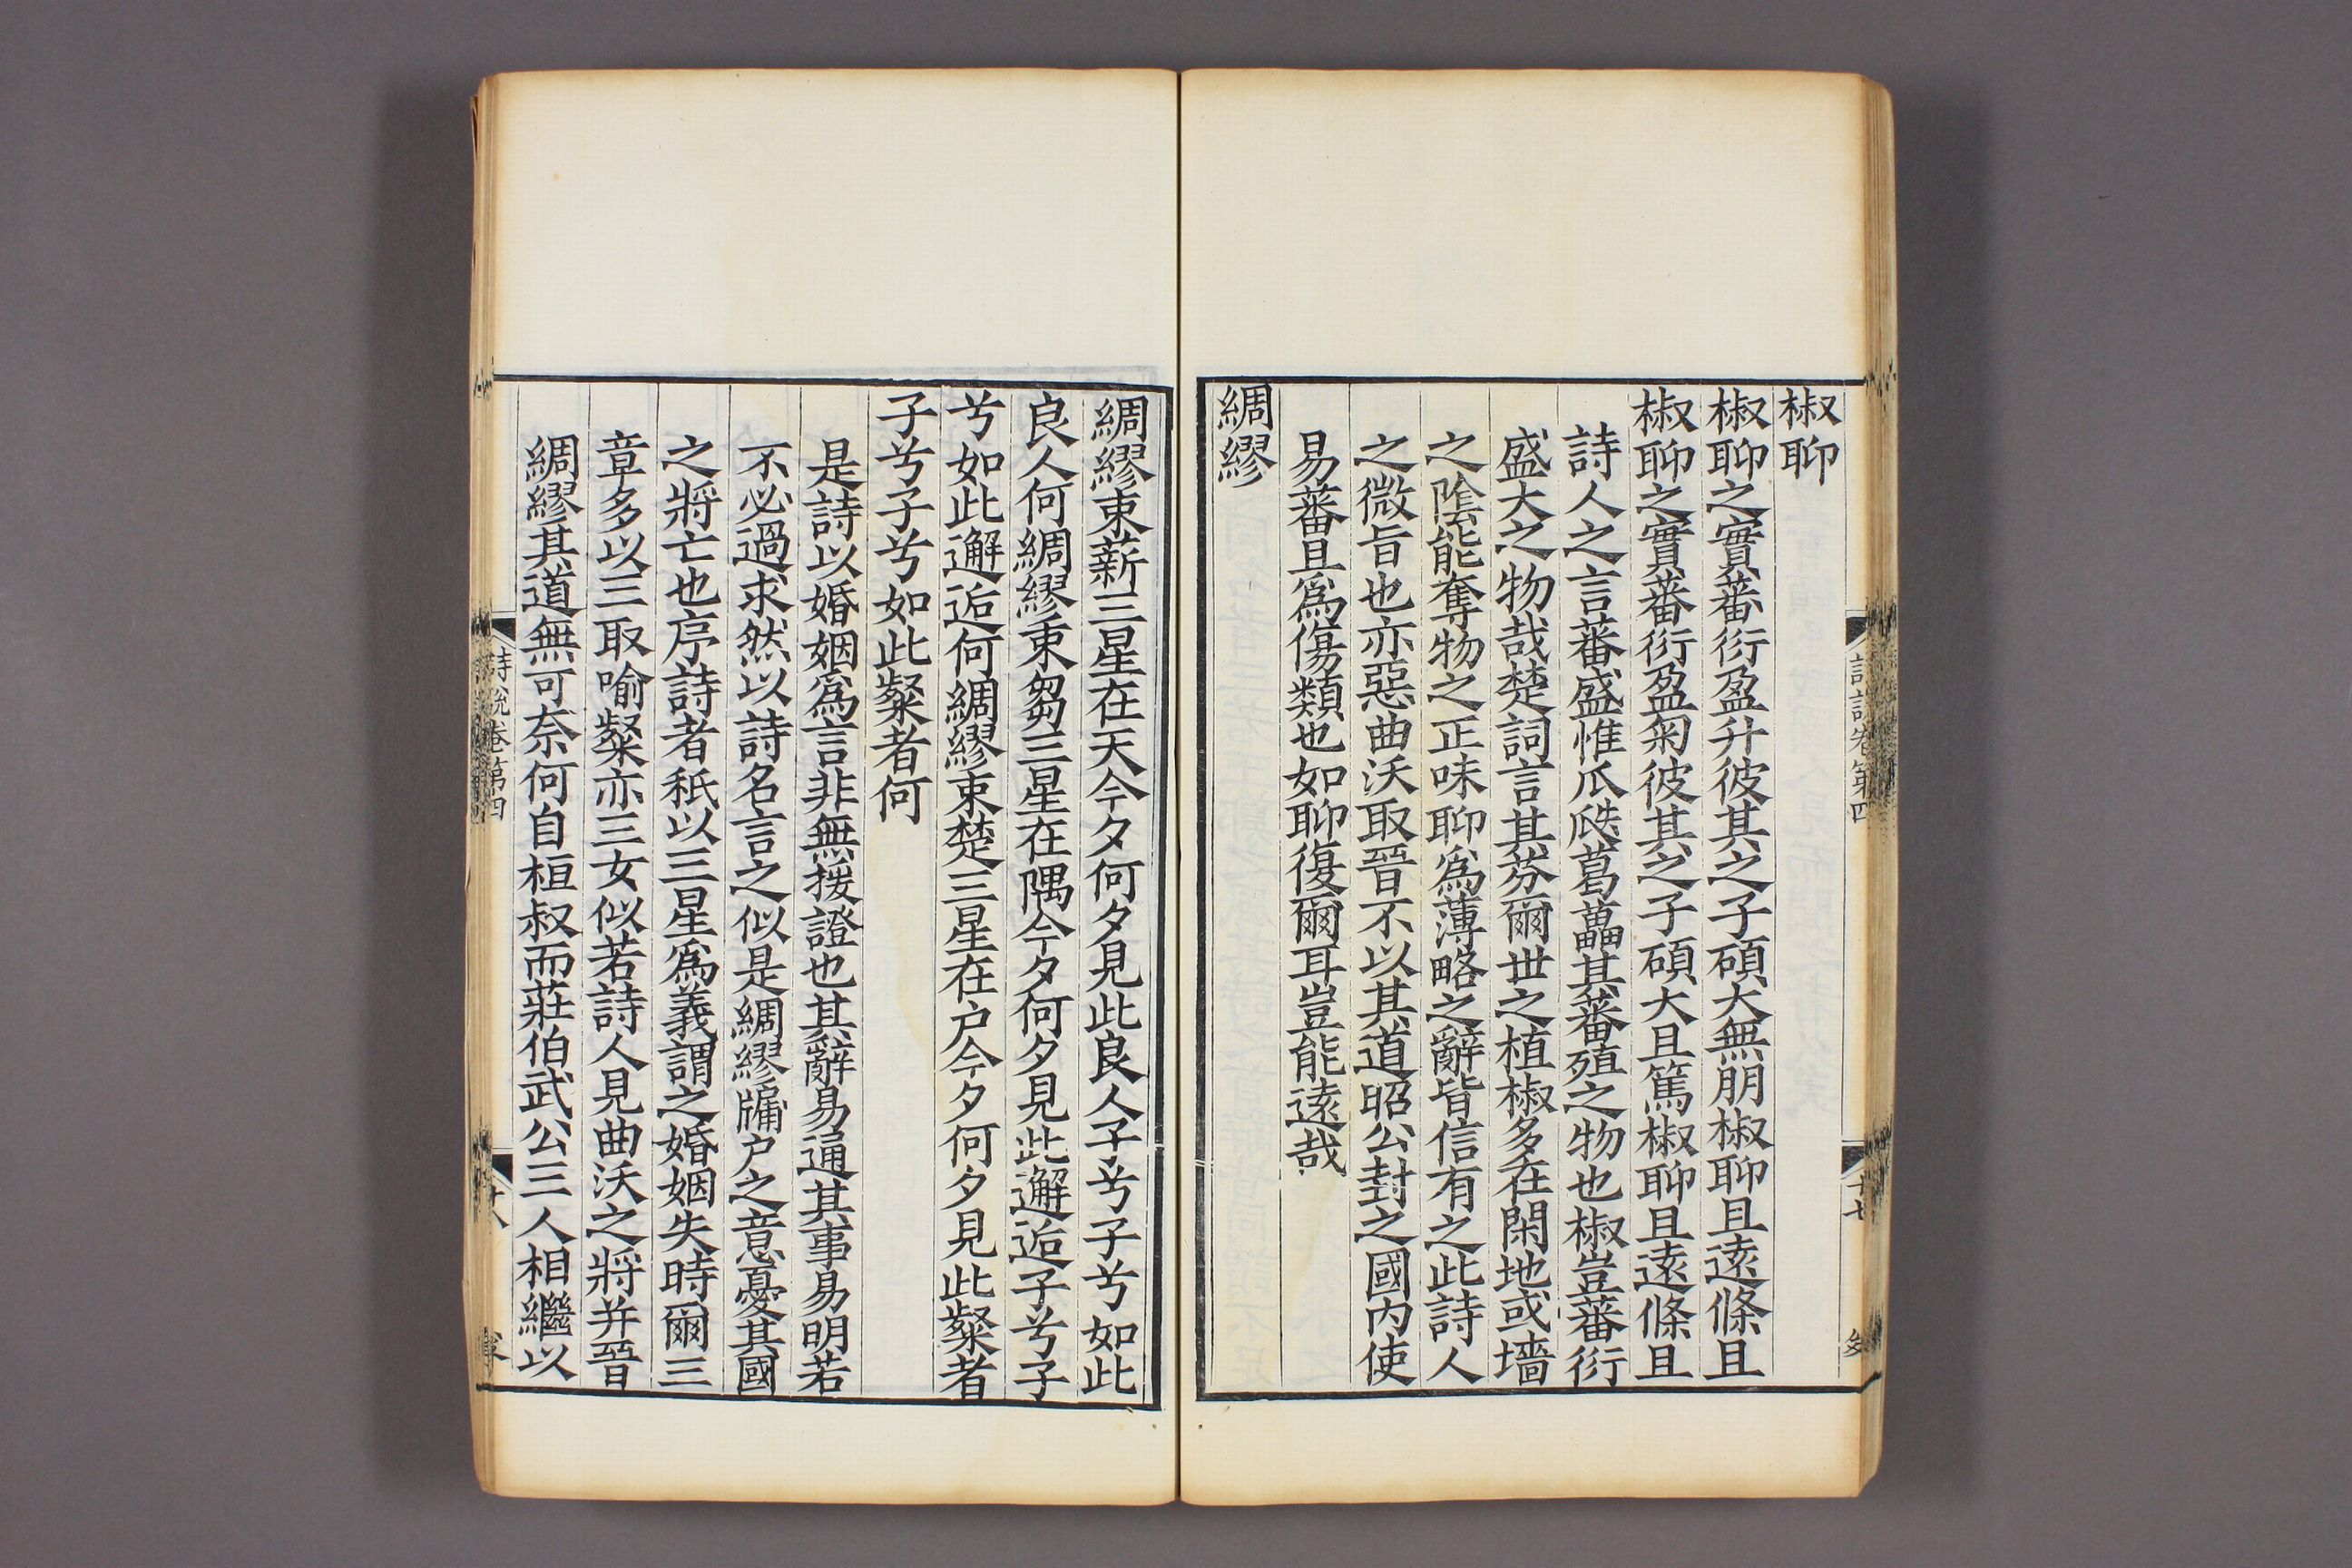 椒聊
椒聊之實蕃衍盈升彼其之子碩大無朋椒聊且遠條且
椒聊之實蕃衍盈匊彼其之子碩大且篤椒聊且遠條且
詩人之言蕃盛惟瓜瓞葛藟其蕃殖之物也椒豈蕃衍
盛大之物哉楚詞言其芬爾世之植椒多在閑地或墻
之陰能奪物之正味聊爲薄略之辭皆信有之此詩人
之微旨也亦惡曲沃取晉不以其道昭公封之國內使
易蕃且爲傷類也如聊復爾耳豈能遠哉
綢繆
詩說卷第四
十七
綢繆束薪三星在天今夕何夕見此良人子兮子兮如此
良人何綢繆束芻三星在隅今夕何夕見此邂逅子兮子
兮如此邂逅何綢繆束楚三星在户今夕何夕見此粲者
子兮子兮如此粲者何
是詩以婚姻爲言非無援證也其辭易通其事易明若
不必過求然以詩名言之似是綢繆牖户之意憂其國
之將亡也序詩者秖以三星爲義謂之婚姻失時爾三
章多以三取喻粲亦三女似若詩人見曲沃之將并晉
綢繆其道無可奈何自桓叔而莊伯武公三人相繼以
詩說卷第四
十八